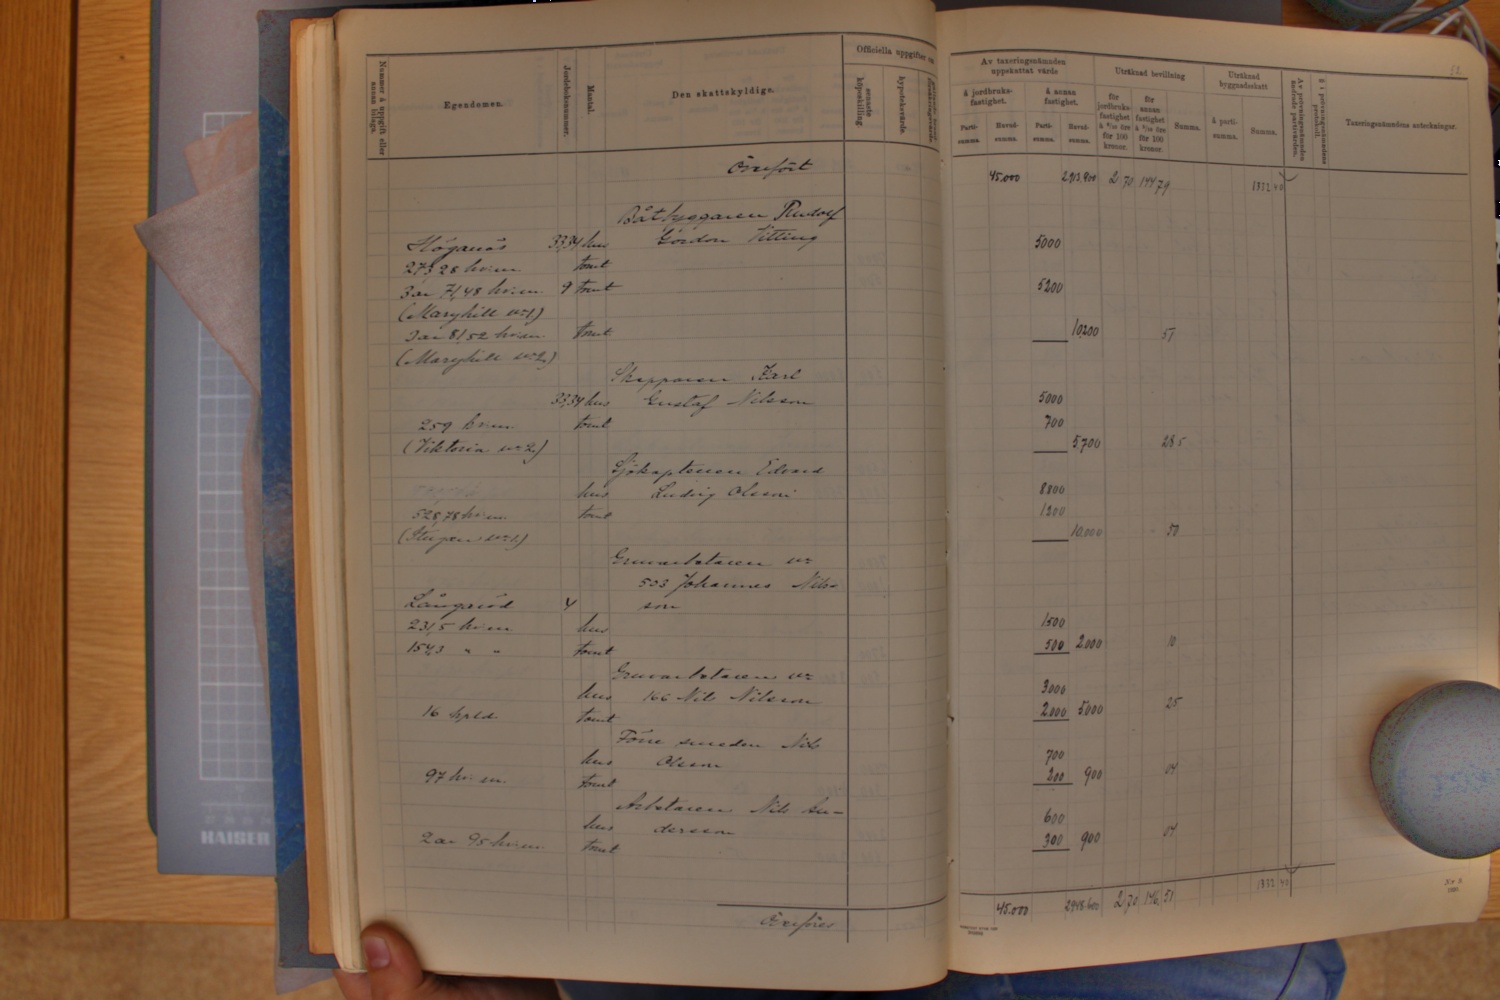 Nummer å uppgift eller annan bilaga.
Egendomen.
Jordeboksnummer.
Mantal.
Den skattskyldige.
Officiella uppgifter om
senaste köpeskilling.
Av taxeringsnämnden uppskattat värde
å jordbruksfastighet.
å annan fastighet.
Parti-summa.
Huvud-summa.
Parti-summa.
Huvud-summa.
Uträknad bevillning
för jordbruksfastighet
för annan fastighet
för 100 kronor.
för 100 kronor.
Summa.
Uträknad byggnadsskatt
å parti-summa.
Summa.
Taxeringsnämndens anteckningar.
Överfört 45.000 2913,900 2 70 144 79 1332 40
Båtbyggaren Rudolf
Höganäs 33,34 hus Gordon Titting 5000
273,28 kv.m. tomt
3 ar 71,48 kv.m. 9 tomt 5200
(Maryhill nr 1)
3 ar 81,52 kv.m. tomt 10200 51
(Maryhill nr 2)
Skepparen Karl
33,34 hus Gustaf Nilsson 5000
259 kv.m. tomt 700
(Viktoria nr 2) 5700 28 5
Sjökaptenen Edvard
hus Ludvig Olsson 8800
528,78 kv.m. tomt 1200
10,000 50
Gruvarbetaren nr
503 Johannes Nils-
Långaröd 4 son
231,5 kv.m. hus 1500
154,3 " " tomt 500 2000 10
Gruvarbetaren nr
hus 166 Nils Nilsson 3000
16 kpld. tomt 2000 5000 25
Förre smeden Nils
hus Olsson 700
97 kv.m. tomt 200 900 04
Arbetaren Nils An-
hus dersson 600
2 ar 95 kv.m. tomt 300 900 04
Överföres 45.000 2948.600 2 70 146 51 1332 40
KAISER